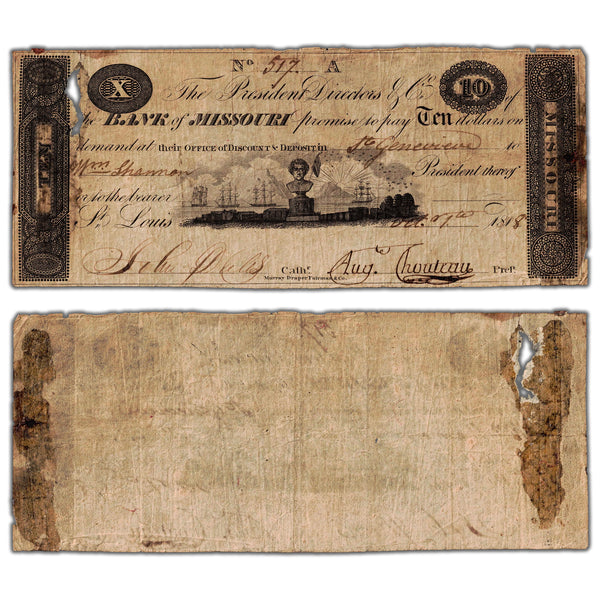 No 517 A
X 10
The President Directors & Co. of
the BANK of MISSOURI promise to pay Ten dollars on
demand at their OFFICE OF DISCOUNT & DEPOSIT in St Genevieve to
Wm Shannon President thereof
or to the bearer
St. Louis Oct. 1818
John Cashr. Augte Chouteau Prest.
Murray Draper Fairman & Co.
TEN
MISSOURI